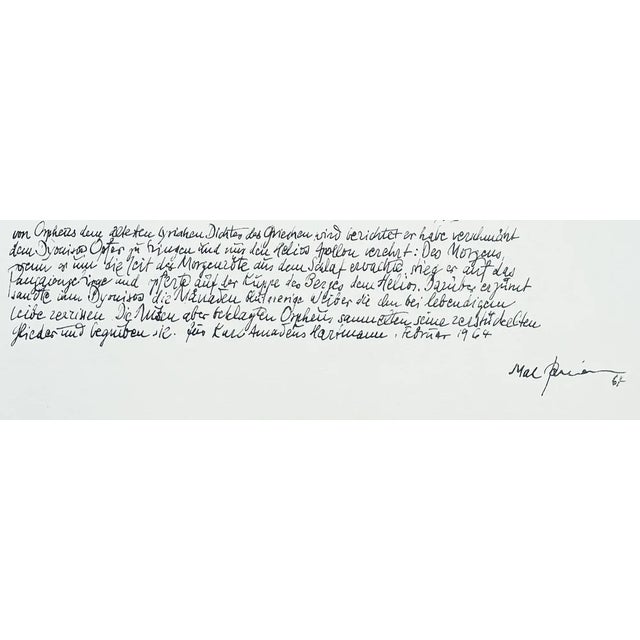 von Orpheus dem ältesten lyrischen Dichter der Griechen wird berichtet er habe verschmäht
dem Dionisos Opfer zu bringen und nur den Helios Apollon verehrt: Des Morgens,
wenn er um die Zeit der Morgenröte aus dem Schlaf erwachte, stieg er auf das
und opferte auf der Kuppe des Berges dem Helios. Darüber erzürnt
sandte ihm Dyonisos die Mänaden blutgierige Weiber die den bei lebendigem
Leibe zerrissen. Die Musen aber beklagten Orpheus sammelten seine zerstückelten
Glieder und begruben sie. für Karl Amadeus Hartmann. Februar 1964
Mac 64